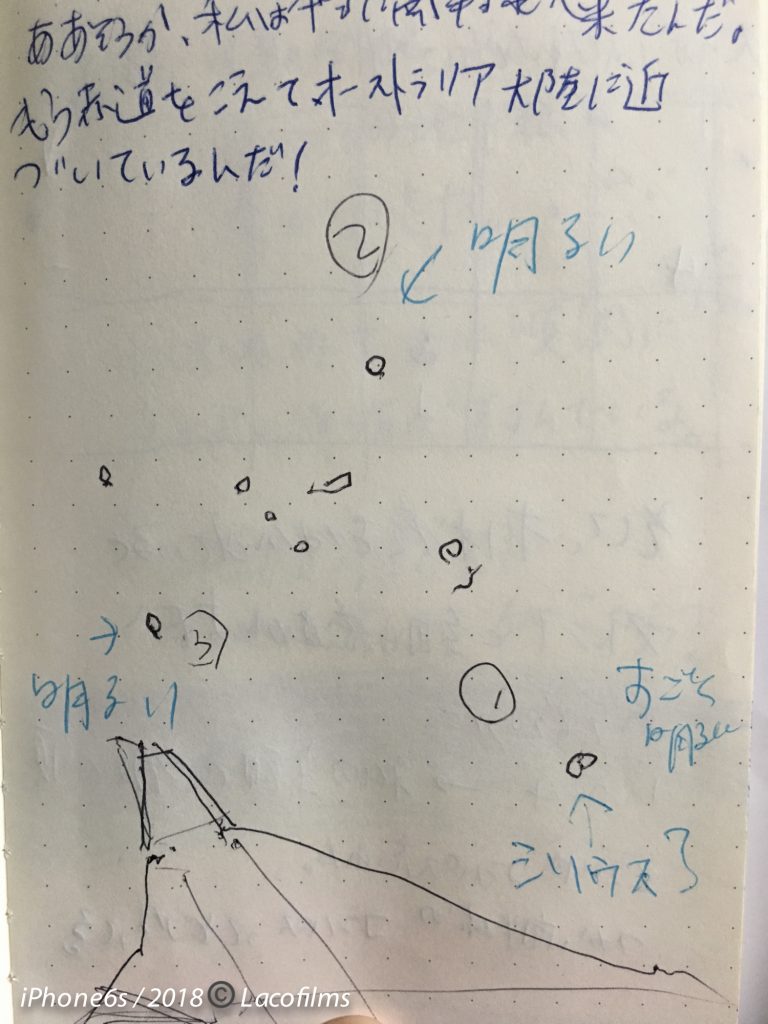 ああそうか、私はやっと南半球へ来たんだ。
もう赤道をこえてオーストラリア大陸に近
づいているんだ!
②
明るい
③
明るい
①
すごく
明るい
シリウス
iPhone6s / 2018 © Lacofilms